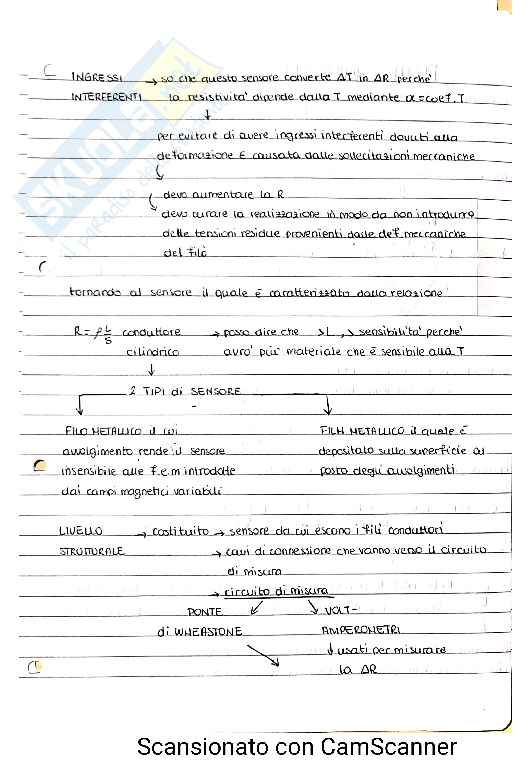 INGRESSI → so che questo sensore converte ΔT in ΔR perche'
INTERFERENTI la resistivita' dipende dalla T mediante α=coef.T
↓
per evitare di avere ingressi interferenti dovuti alla
deformazione ε causata dalle sollecitazioni meccaniche
devo aumentare la R
devo curare la realizzazione in modo da non introdurre
delle tensioni residue provenienti dalle def meccaniche
del filo
tornando al sensore il quale è caratterizzato dalla relazione
R=ρ L/S conduttore → posso dire che >L, > sensibilita' perche'
cilindrico avro' piu' materiale che è sensibile alla T
↓
2 TIPI di SENSORE
FILO METALLICO il cui
avvolgimento rende il sensore
insensibile alle f.e.m introdotte
dai campi magnetici variabili
FILM METALLICO il quale è
depositato sulla superficie al
posto degli avvolgimenti
LIVELLO → costituito → sensore da cui escono i fili conduttori
STRUTTURALE → cavi di connessione che vanno verso il circuito
di misura
→ circuito di misura
PONTE
di WHEASTONE
VOLT-
AMPEROMETRI
↓ usati per misurare
la ΔR
SKUOLA
il paradiso
Scansionato con CamScanner